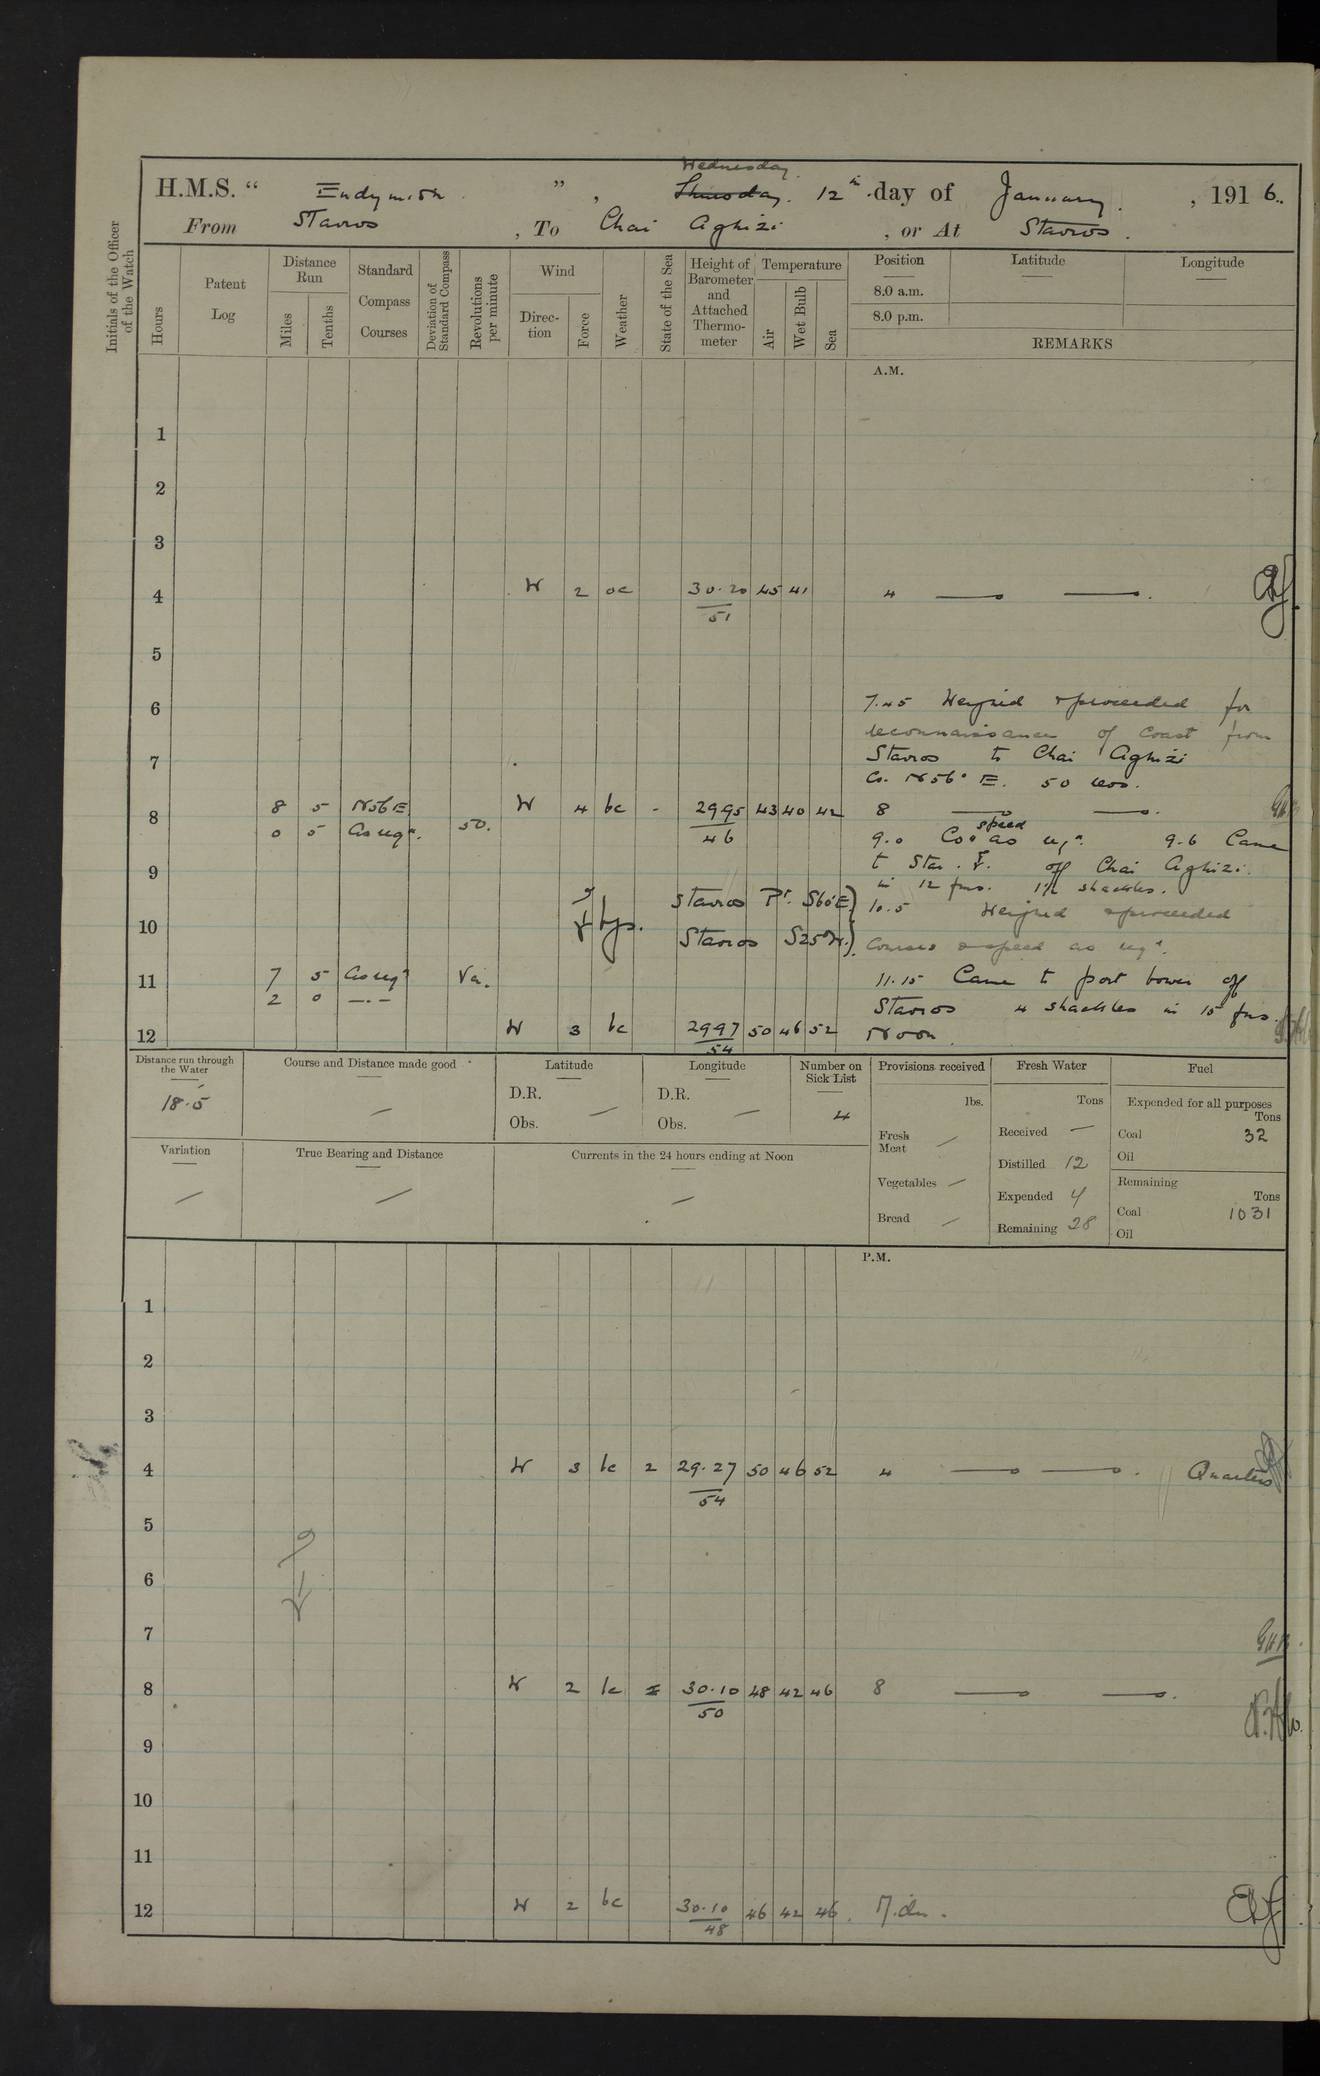 Wednesday.
H.M.S. “ Endymion ” , Thursday. 12th day of January. , 1916.
From Stavros , To Chai Aghizi , or At Stavros.
Initials of the Officer of the Watch
Hours
Patent Log
Distance Run
Miles
Tenths
Standard Compass Courses
Deviation of Standard Compass
Revolutions per minute
Wind
Direction
Force
Weather
State of the Sea
Height of Barometer and Attached Thermometer
Temperature
Air
Wet Bulb
Sea
Position Latitude Longitude
8.0 a.m.
8.0 p.m.
REMARKS
A.M.
1
2
3
4 W 2 oc 30.20 45 41 4
51
5
6 7.45 Weighed & proceeded for
reconnaissance of Coast from
7 Stavros to Chai Aghizi
Co. N56° E. 50 revs.
8 8 5 N56E W 4 bc - 29.95 43 40 42 8
46
0 5 As reqd. 50. 9.0 Co. & speed as reqd. 9.6 Came
9 to Star. off Chai Aghizi.
in 12 fms. 1½ shackles.
Stavros Pt. S60°E
10 10.5 Weighed & proceeded
Stavros S25°W. Courses & speed as reqd.
11 7 5 As reqd Va. 11.15 Came to port bower off
2 0 Stavros 4 shackles in 15 fms.
12 W 3 bc 29.97 50 46 52 Noon.
54
Distance run through the Water
18.5
Course and Distance made good
—
Latitude
D.R.
Obs. —
Longitude
D.R.
Obs. —
Number on Sick List
4
Variation
—
True Bearing and Distance
—
Currents in the 24 hours ending at Noon
—
Provisions received
lbs.
Fresh Meat —
Vegetables —
Bread —
Fresh Water
Tons
Received —
Distilled 12
Expended 4
Remaining 28
Fuel
Expended for all purposes
Tons
Coal 32
Oil
Remaining
Tons
Coal 1031
Oil
P.M.
1
2
3
4 W 3 bc 2 29.27 50 46 52 4 Quarters
54
5
6
7
8 W 2 bc 30.10 48 42 46 8
50
9
10
11
12 W 2 bc 30.10 46 42 46. Mdn.
48